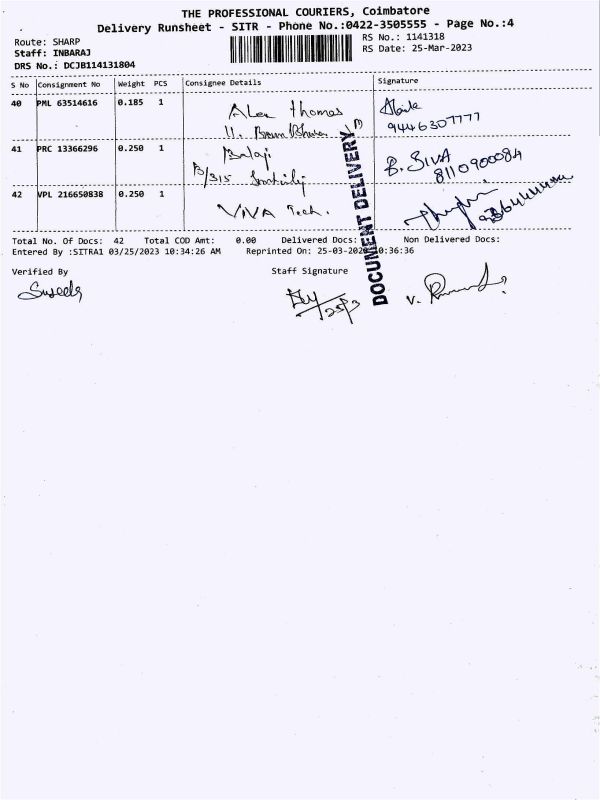 THE PROFESSIONAL COURIERS, Coimbatore
Delivery Runsheet - SITR - Phone No.:0422-3505555 - Page No.:4
Route: SHARP
Staff: INBARAJ
DRS No.: DCJB114131804
RS No.: 1141318
RS Date: 25-Mar-2023
S No Consignment No Weight PCS Consignee Details Signature
40 PML 63514616 0.185 1 Alex Thomas
9446307777
41 PRC 13366296 0.250 1 Balaji B. SIVA
B/315 8110900084
42 VPL 216650838 0.250 1 VIVA Tech.
DOCUMENT DELIVERY
Total No. Of Docs: 42 Total COD Amt: 0.00 Delivered Docs: Non Delivered Docs:
Entered By :SITRA1 03/25/2023 10:34:26 AM Reprinted On: 25-03-202 0:36:36
Verified By Staff Signature
25/3